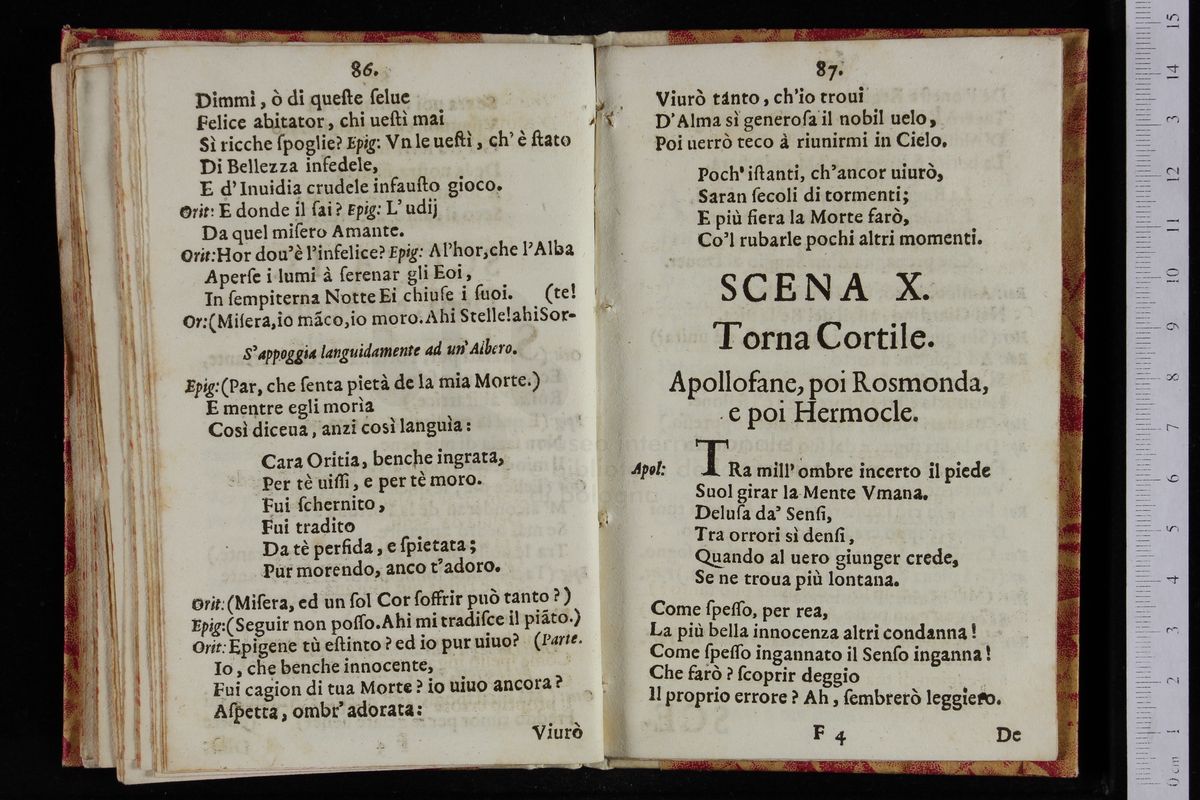 86.
Dimmi, ò di queſte ſelue
Felice abitator, chi ueſtì mai
Sì ricche ſpoglie? Epig: Vn le ueſtì, ch' è ſtato
Di Bellezza infedele,
E d' Inuidia crudele infauſto gioco.
Orit: E donde il ſai? Epig: L' udij
Da quel miſero Amante.
Orit: Hor dou'è l'infelice? Epig: Al'hor, che l'Alba
Aperſe i lumi à ſerenar gli Eoi,
In ſempiterna Notte Ei chiuſe i ſuoi. (te!
Or: (Miſera, io mãco, io moro. Ahi Stelle! ahi Sor-
S'appoggia languidamente ad un' Albero.
Epig: (Par, che ſenta pietà de la mia Morte.)
E mentre egli morìa
Così diceua, anzi così languìa:
Cara Oritia, benche ingrata,
Per tè uiſſi, e per tè moro.
Fui ſchernito,
Fui tradito
Da tè perfida, e ſpietata;
Pur morendo, anco t'adoro.
Orit: (Miſera, ed un ſol Cor ſoffrir può tanto?)
Epig: (Seguir non poſſo. Ahi mi tradiſce il piãto.)
Orit: Epigene tù eſtinto? ed io pur uiuo? (Parte.
Io, che benche innocente,
Fui cagion di tua Morte? io uiuo ancora?
Aſpetta, ombr' adorata:
Viurò
87.
Viurò tánto, ch'io troui
D'Alma sì generoſa il nobil uelo,
Poi uerrò teco à riunirmi in Cielo.
Poch' iſtanti, ch'ancor uiurò,
Saran ſecoli di tormenti;
E più fiera la Morte farò,
Co'l rubarle pochi altri momenti.
SCENA X.
Torna Cortile.
Apollofane, poi Rosmonda,
e poi Hermocle.
Apol: TRa mill' ombre incerto il piede
Suol girar la Mente Vmana.
Deluſa da' Senſi,
Tra orrori sì denſi,
Quando al uero giunger crede,
Se ne troua più lontana.
Come ſpeſſo, per rea,
La più bella innocenza altri condanna!
Come ſpeſſo ingannato il Senſo inganna!
Che farò? ſcoprir deggio
Il proprio errore? Ah, ſembrerò leggiero.
F 4
De